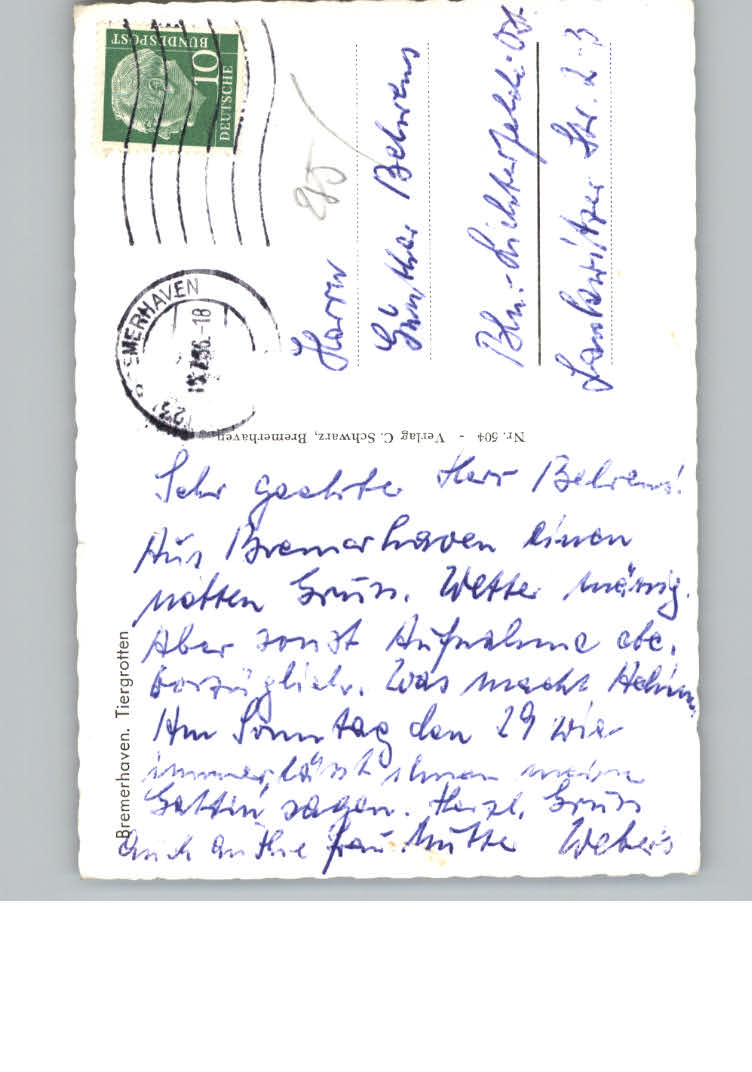 DEUTSCHE
BUNDESPOST
10
BREMERHAVEN
-18
85
Herrn
Günther Behrens
Bln.-Lichterfelde-Ost
Lankwitzer Str. 2-3
Nr. 504 - Verlag C. Schwarz, Bremerhaven
Bremerhaven. Tiergrotten
Sehr geehrter Herr Behrens!
Aus Bremerhaven einen
netten Gruss. Wetter mässig.
Aber sonst Aufnahme etc.
vorzüglich. Was macht
Am Sonntag den 29 wie
immer, lässt Ihnen meine
Gattin sagen. Herzl. Gruss
auch an Ihre Frau Mutter Weber's